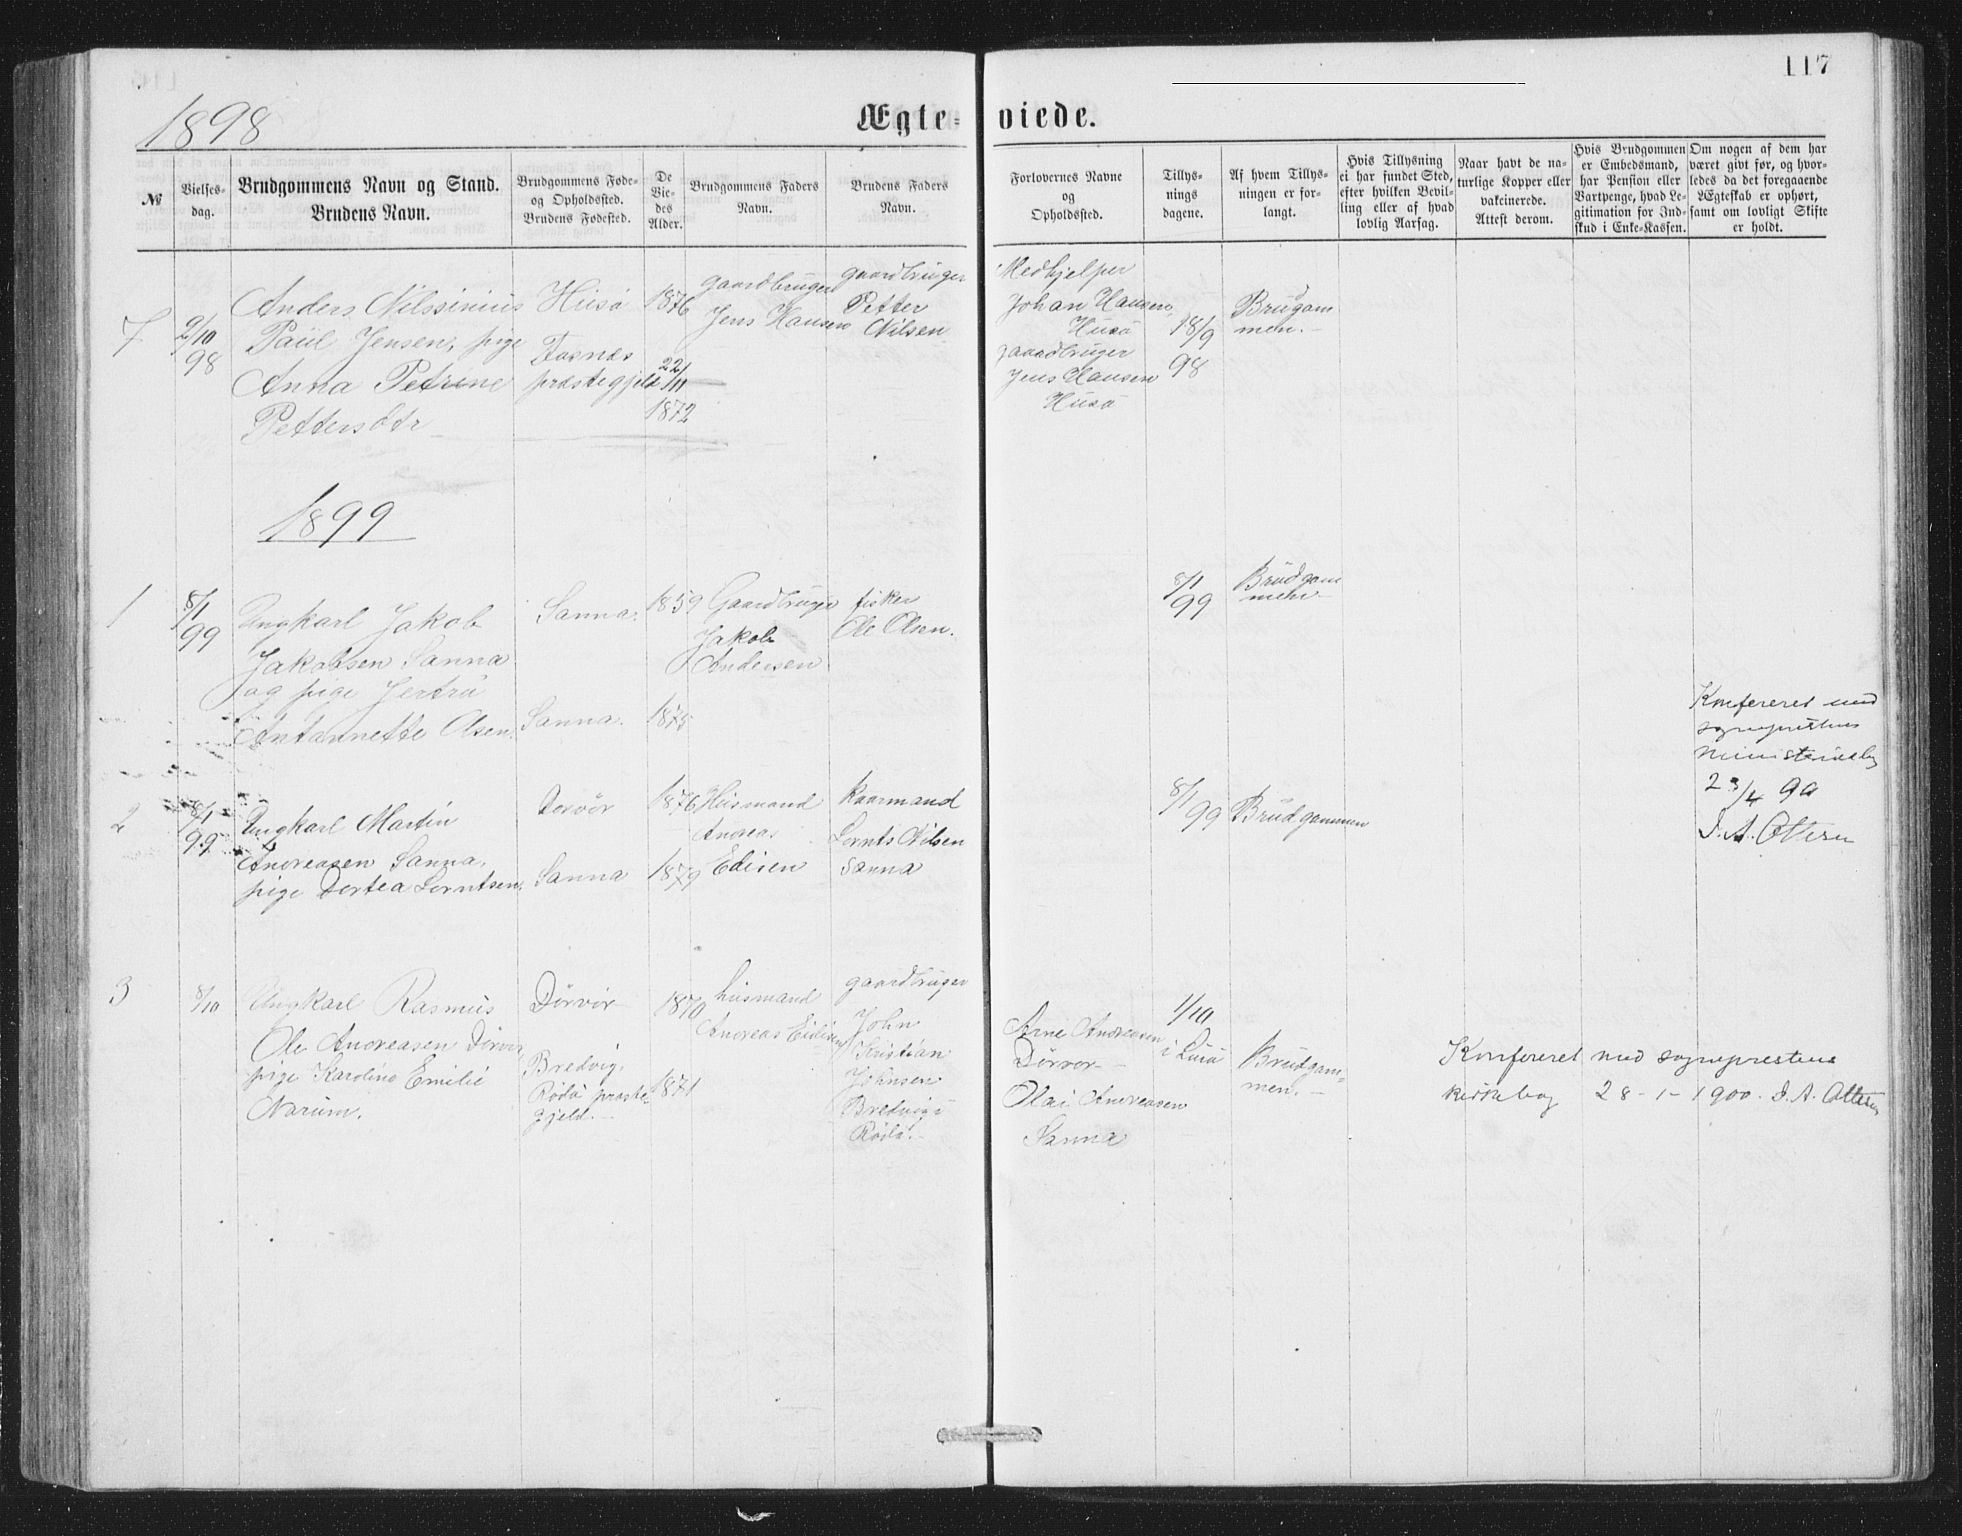 117
1898
Ægte-viede.
№
Vielses-
dag.
Brudgommens Navn og Stand.
Brudens Navn.
Brudgommens Føde-
og Opholdssted.
Brudens Fødested.
De
Vie-
des
Alder.
Brudgommens Faders
Navn.
Brudens Faders
Navn.
Forlovernes Navne
og
Opholdssted.
Tillys-
nings
dagene.
Af hvem Tillys-
ningen er for-
langt.
Hvis Tillysning
ei har fundet Sted,
efter hvilken Bevil-
ling eller af hvad
lovlig Aarsag.
Naar havt de na-
turlige Kopper eller
vakcinerede.
Attest derom.
Hvis Brudgommen
er Embedsmand,
har Pension eller
Vartpenge, hvad Le-
gitimation for Ind-
skud i Enke-Kassen.
Om nogen af dem har
været givt før, og hvor-
ledes da det foregaaende
Ægteskab er ophørt,
samt om lovligt Skifte
er holdt.
7
2/10
98
Anders Nilssinius
Paul Jensen, pige
Anna Petrine
Pettersdtr
Husö
præstegjeld
1876
22/11
1872
gaardbruger
Jens Hansen
gaardbruger
Petter
Nilsen
Medhjelper
Johan Hansen,
Husö
gaardbruger
Jens Hansen
Husö
18/9
98
Brudgam
men.-
1899
1
8/1
99
Ungkarl Jakob
Jakobsen Sanna
og pige Jertru
Antannette Olsen.
Sanna.
Sanna.
1859
1875
Gaardbruger
Jakob
Andersen
fisker
Ole Olsen.
8/1
99
Brudgam
men-
Konfereret med
sogneprestens
ministerialbog
23/4 99
J. A. Ottesen
2
8/1
99
Ungkarl Martin
Andreasen Sanna,
pige Dortea Lorntsen.
Dorvör
Sanna
1876
1879
Husmand
Andreas
Edisen
kaarmand
Lornts Nilsen
Sanna
8/1
99
Brudgammen
3
8/10
Ungkarl Rasmus
Ole Andreasen Dörvör,
pige Karoline Emilie
Narum.
Dörvör
Bredvig,
Rödö præste-
gjeld.-
1870
1871
husmand
Andreas Eidisen
gaardbruger
John
Kristian
Johnsen
Bredvig i
Rödö.-
Arne Andreasen
Dörvor-
Olai Andreasen
Sanna
1/10
i Lurö
Brudgam-
men.-
Konfereret med sogneprestens
kirkebog 28-1-1900. J. A. Ottesen